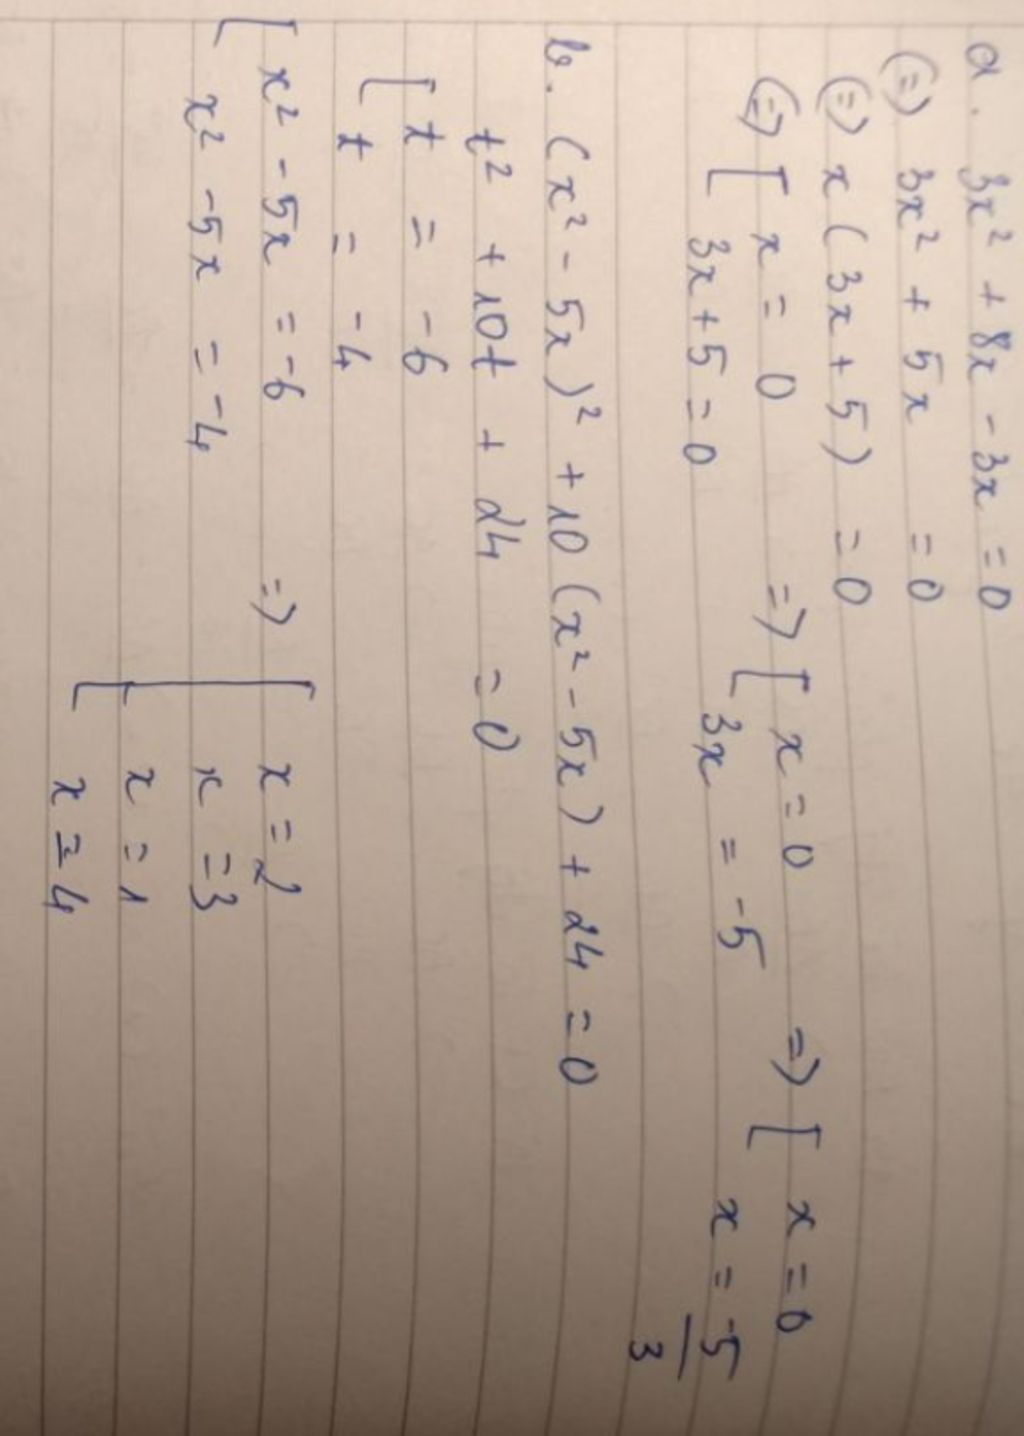 a. 3x² + 8x - 3x = 0
(=) 3x² + 5x = 0
(=) x(3x+5) = 0
(=) [ x = 0 => [ x = 0 => [ x = 0
3x+5 = 0 3x = -5 x = -5/3
b. (x² - 5x)² + 10(x² - 5x) + 24 = 0
t² + 10t + 24 = 0
[ t = -6
t = -4
[ x² - 5x = -6 => [ x = 2
x² - 5x = -4 x = 3
x = 1
x = 4